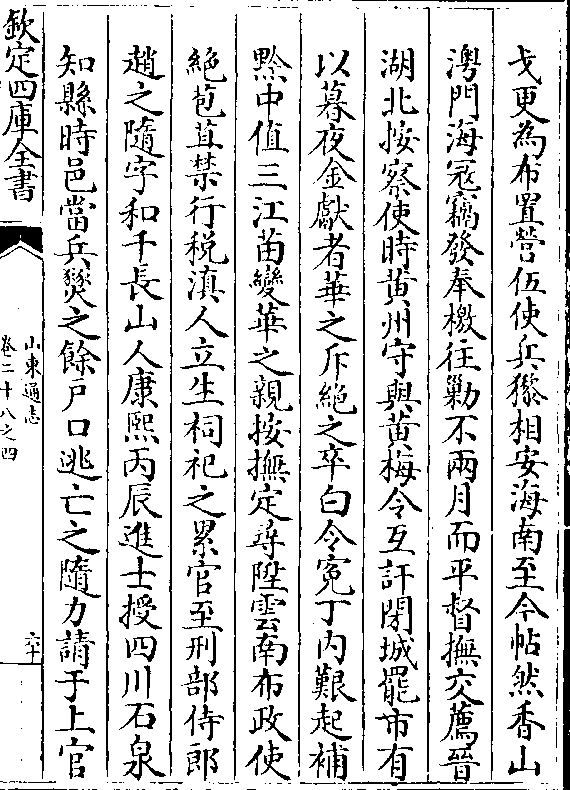 戈更為布置營伍使兵獠相安海南至今帖然香山
澚門海冦竊發奉檄往勦不兩月而平督撫交薦晉
湖北按察使時黄州守與黄梅令互訐閉城罷市有
以暮夜金獻者華之斥絶之卒白令寃丁内艱起補
黔中值三江苗變華之親按撫定尋陞雲南布政使
絶苞苴禁行稅滇人立生祠祀之累官至刑部侍郎
趙之隨字和千長山人康熙丙辰進士授四川石泉
知縣時邑當兵燹之餘户口逃亡之隨力請于上官
欽定四庫全書
山東通志
卷二十八之四
六十